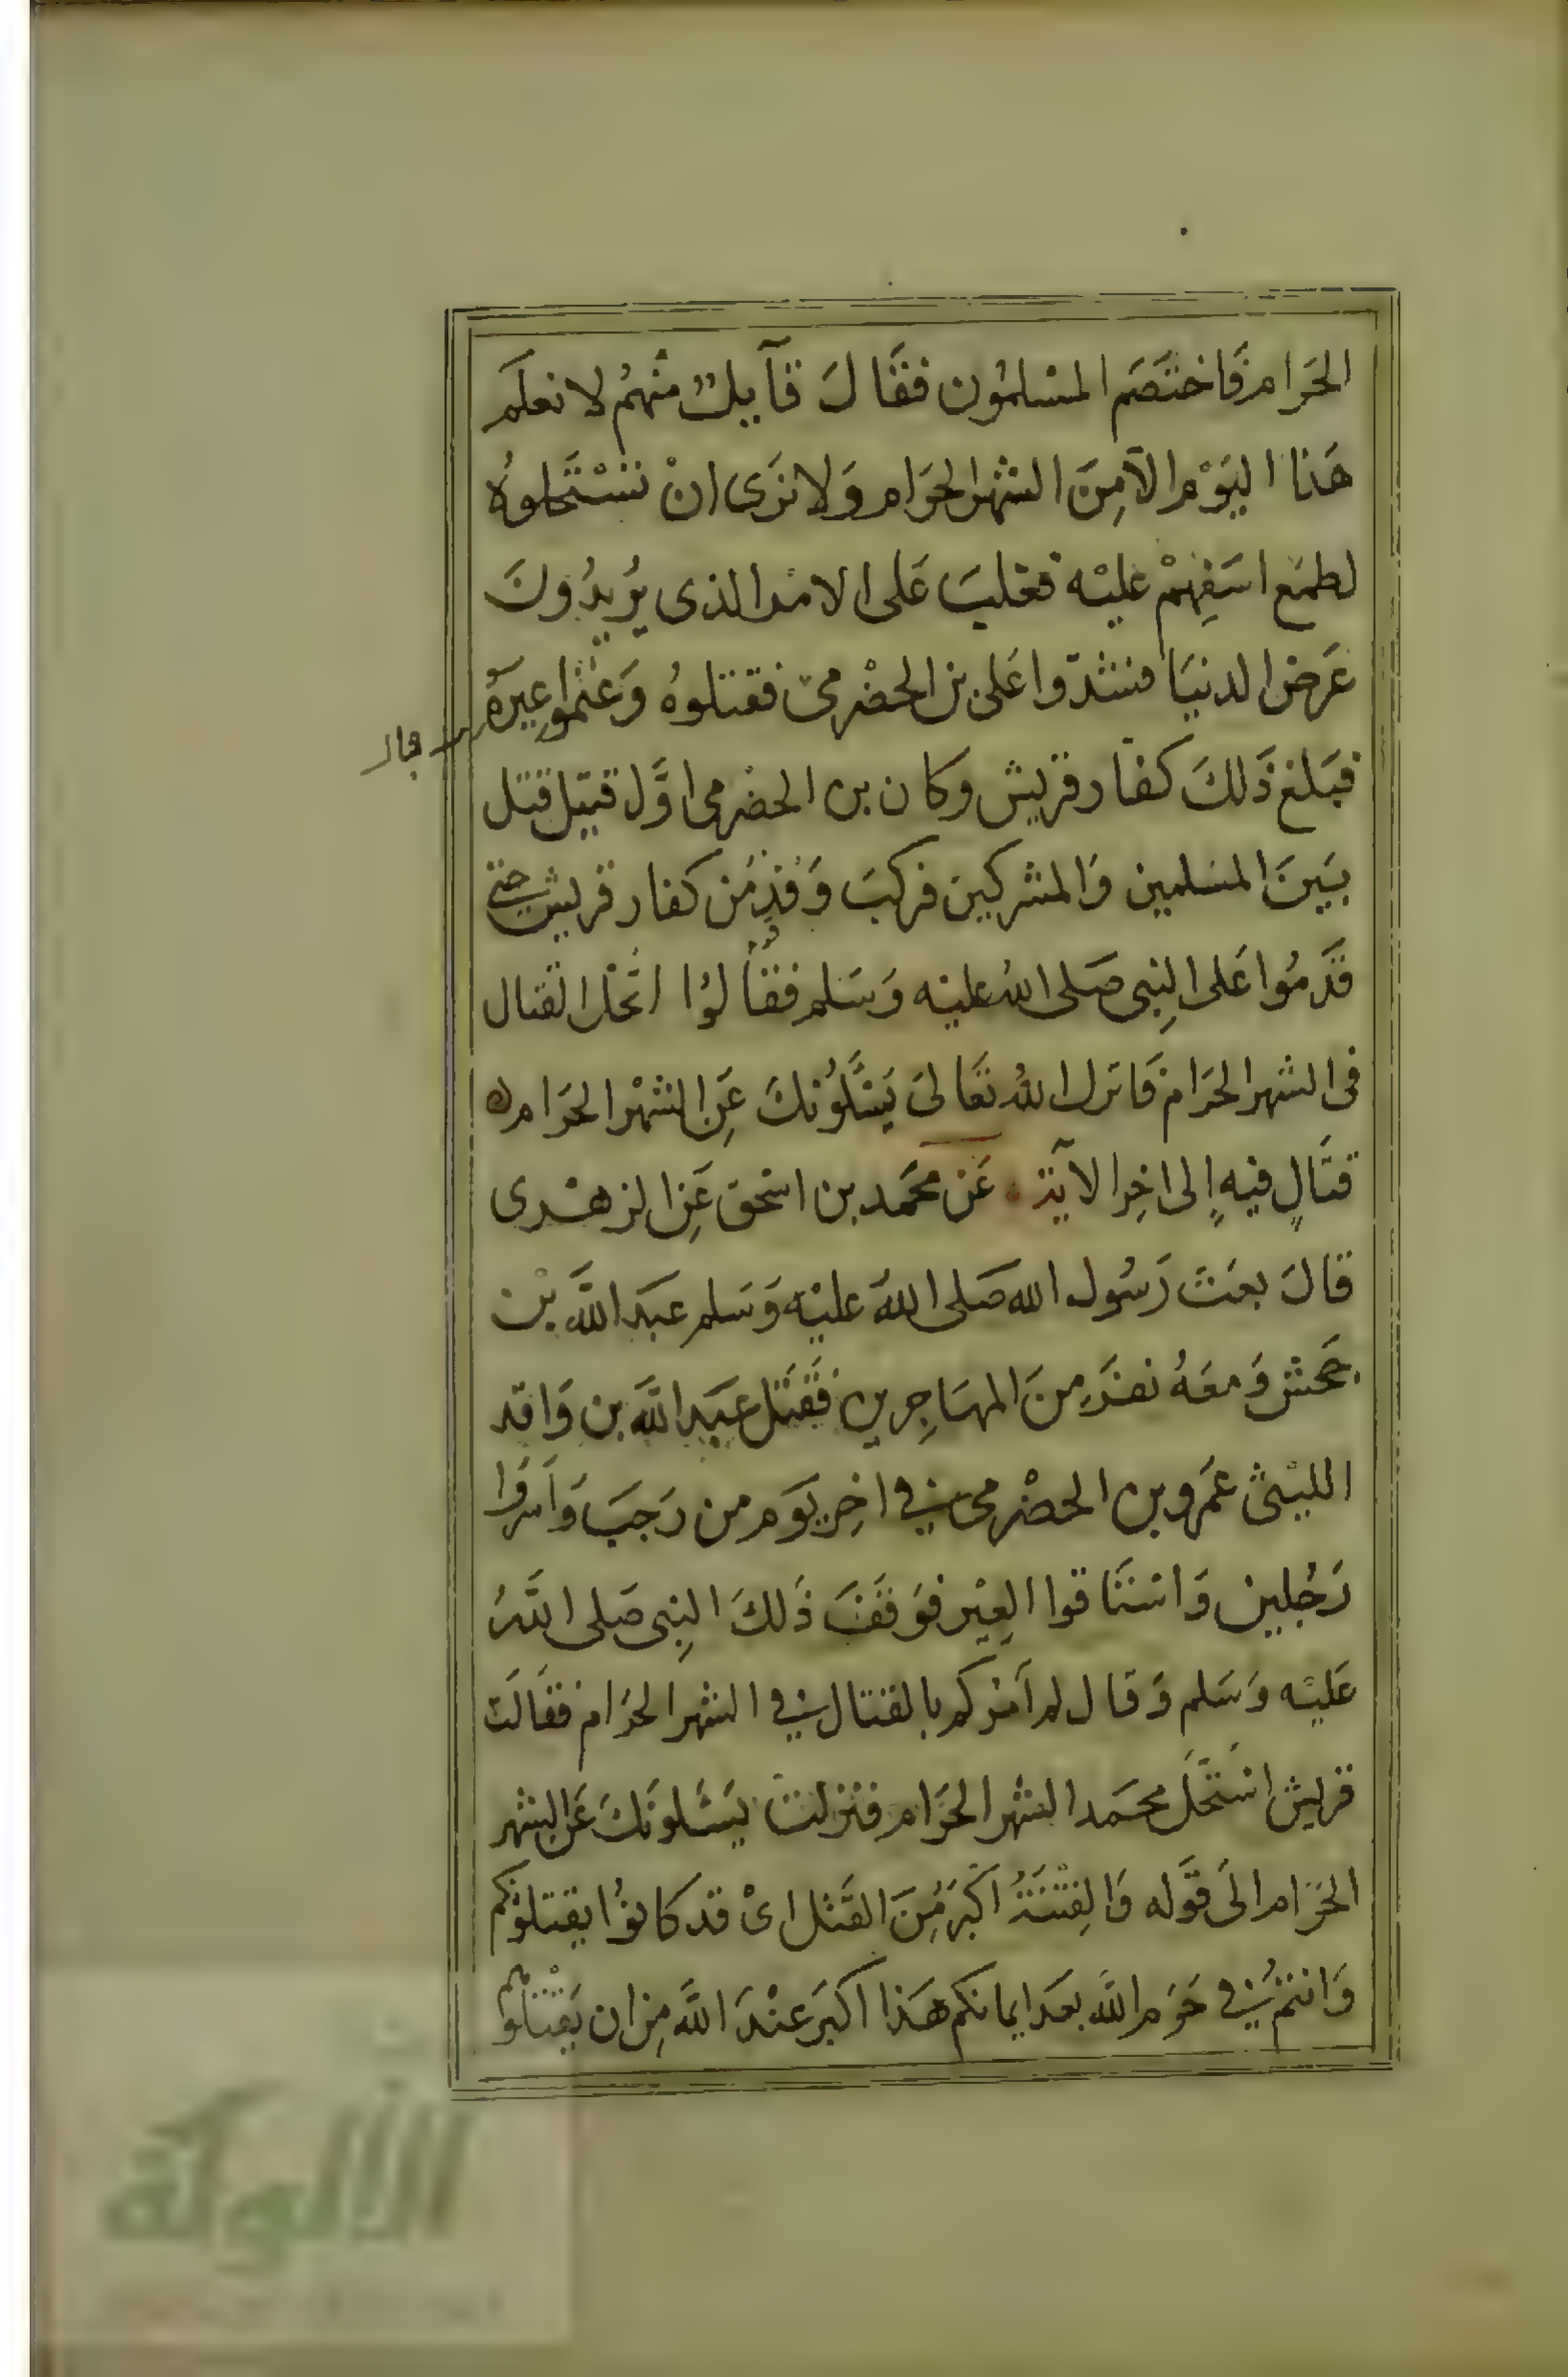 الحَرَام فَاختَصَم المسْلمُون فقَالَ قآيلٌ منْهُم لا نعلَم
هَذا اليَوْم الاّ مِنَ الشهر الحَرَام وَلا نَرَى انْ تسْتَحلوهُ
لطمَع اسَفِهمْ عليْه فغلبَ عَلى الامْر الذى يُريدُونَ
عَرَض الدنيَا فشدّوا عَلى بن الحضْرمىّ فقتلوهُ وَغنمُوا عِيرَهُ
فبَلغ ذَلكَ كفار قريش وَكان بن الحضرمى اوَّل قتيل قتل
بَيَنَ المسَلمين وَالمشركين فركبَ وَفدٌ مَن كفار قريش حتى
قَدمُوا عَلى النِبى صَلى اللهُ عليْه وَسَلم فقالوُا اتحُل القتال
فى الشهر الحَرَام فَانزل اللهُ تعَالىَ يَسَّلُوُنكَ عَنِ الشهْر الحَرَام
قتَالٍ فيهِ إلى اخِر الآيَة عَن محَمد بن اسْحق عَنِ الزهْرى
قالَ بعَثَ رَسُول الله صَلى اللهُ عليْه وَسَلم عَبَد اللَّه بْن
جَحش وَمعَهُ نفرَ مِنَ المهَاجِرين فَقَتَل عَبَد اللَّه بن وَاقد
الليْثىّ عَمَرو بن الحضْرمى في اخِر يَوَم من رَجَبَ وَاَسَرُوا
رَجُلين وَاسْتَاقوا العِيْر فوَقَفَ ذَلكَ النِبى صَلى اللَّهُ
عَليْه وَسَلم وَقال لم آمُركم بالقتال في الشهر الحَرَام فقَالَت
قريش اسْتَحَلَّ محَمد الشهر الحَرَام فنزلت يَسَّلونَكَ عَن الشهر
الحَرَام الىَ قَوله وَالِفتْنَةُ اَكبَر مِنَ القَتْل اىْ قد كانوُا يقتلونكم
وَانتم في حَرَم اللَّه بعدَ ايمانكم هَذا اكبَر عنْدَ اللَّه مِن ان يَقْتلوهم